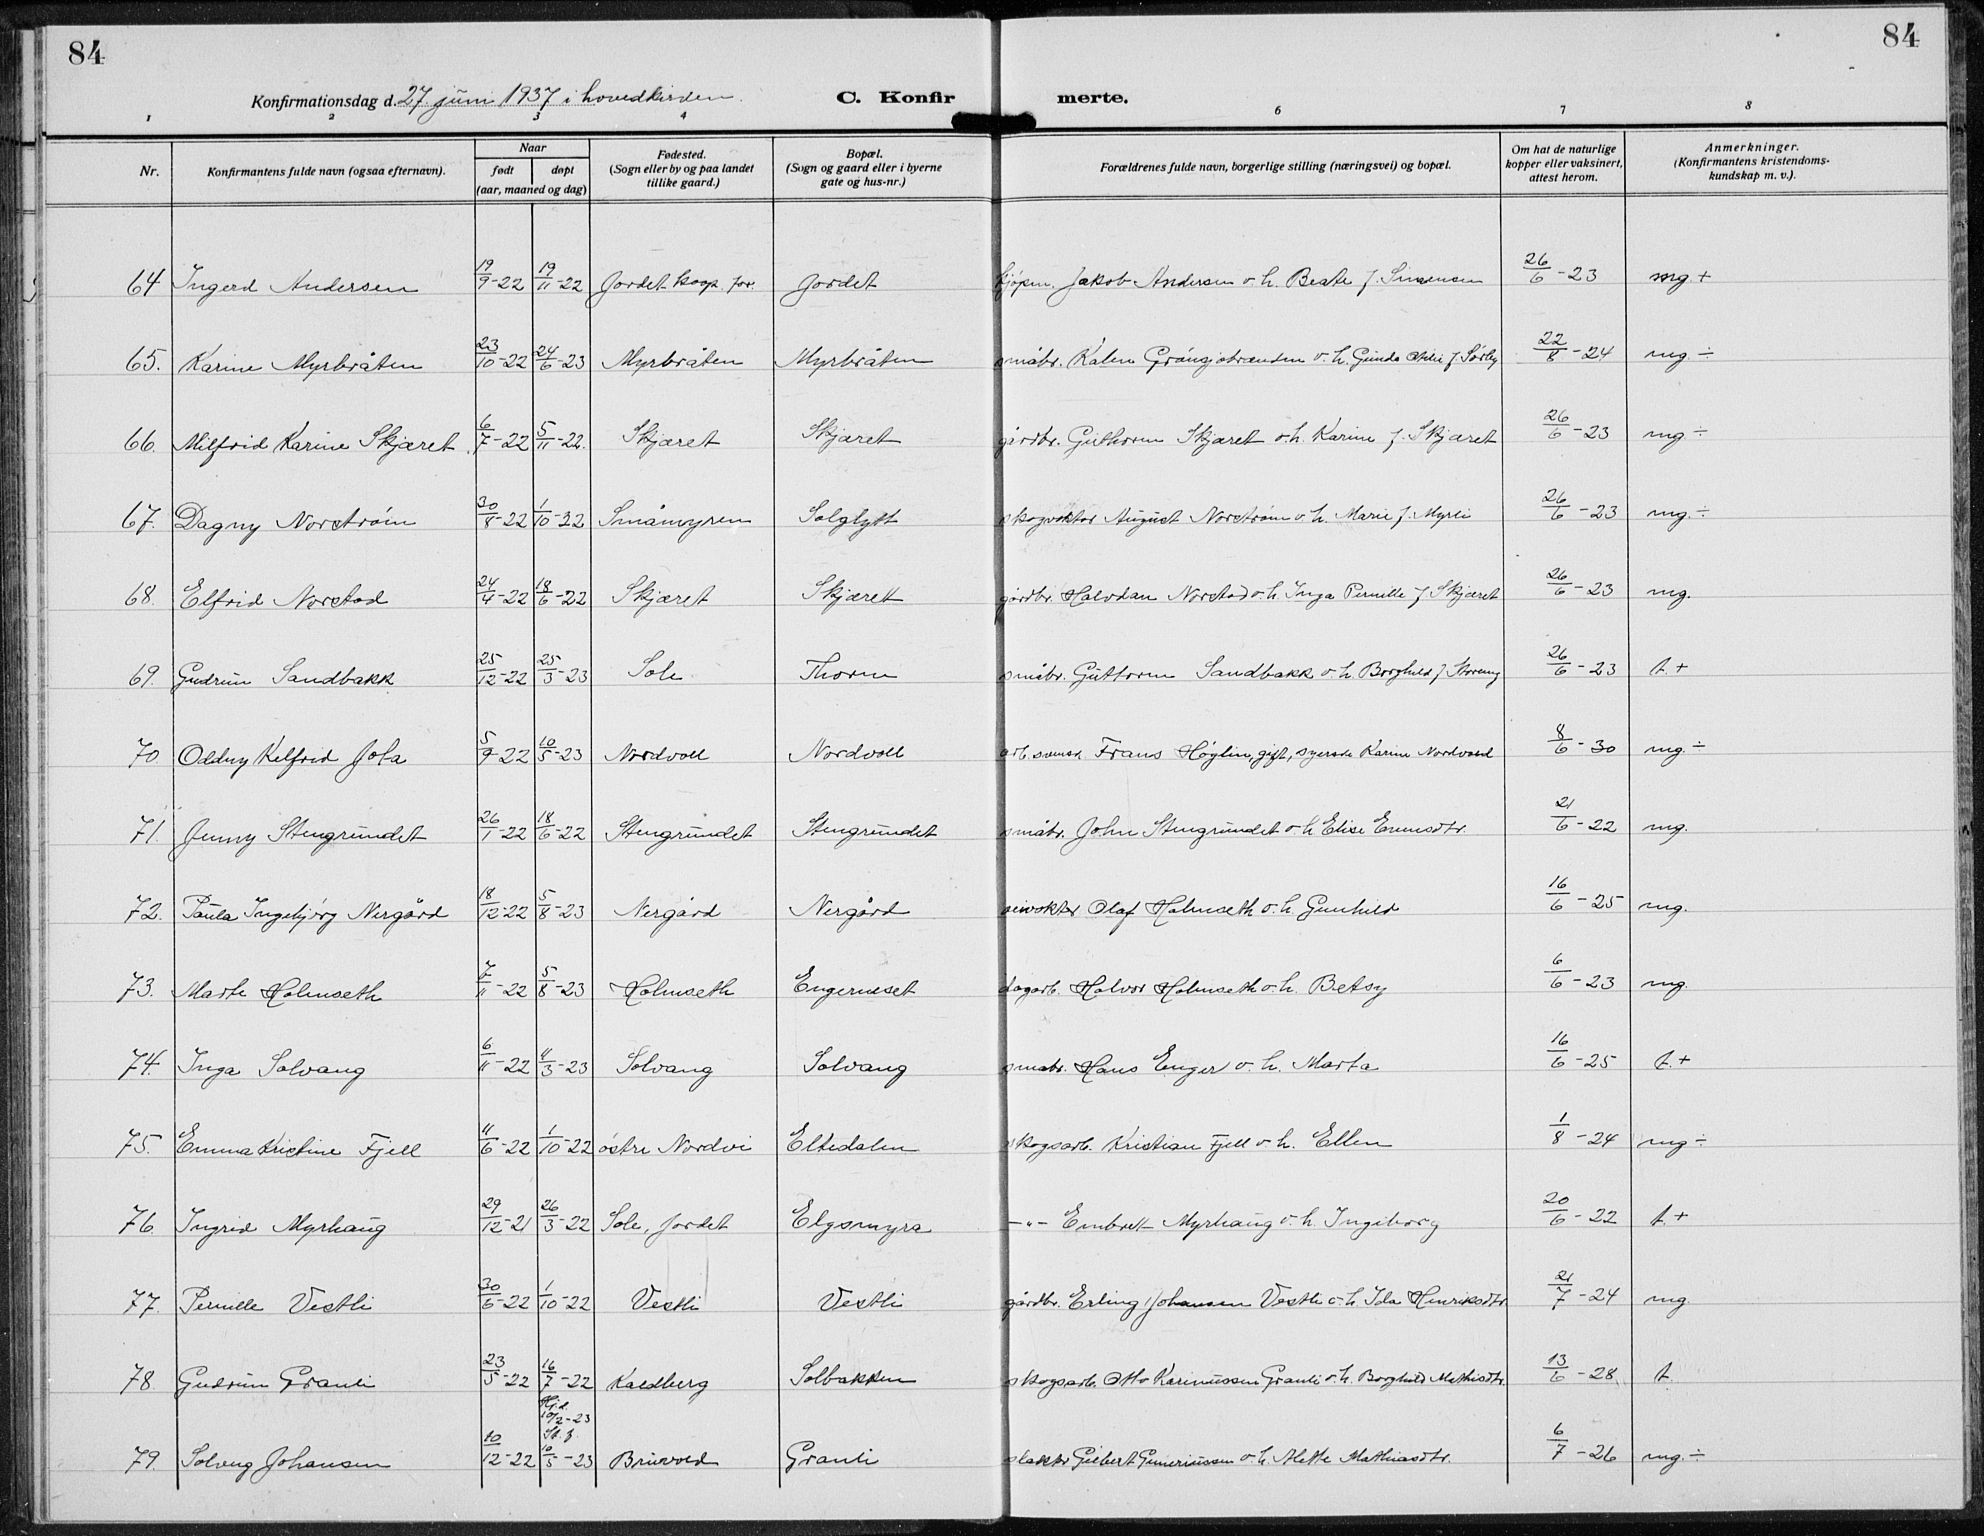 84
84
Konfirmationsdag d. 27. juni 1937 i hovedkirken. C. Konfirmerte.
1 2 3 4 6 7 8
Nr. Konfirmantens fulde navn (ogsaa efternavn). Naar født døpt (aar, maaned og dag) Fødested. (Sogn eller by og paa landet tillike gaard.) Bopæl. (Sogn og gaard eller i byerne gate og hus-nr.) Forældrenes fulde navn, borgerlige stilling (næringsvei) og bopæl. Om hat de naturlige kopper eller vaksinert, attest herom. Anmerkninger. (Konfirmantens kristendoms-kundskap m. v.).
64 Ingerd Andersen 19/9-22 19/11-22 Jordet koop. for. Jordet kjøpm. Jakob Andersen o. h. Beate f. Simensen 26/6-23 mg +
65. Karine Myrbråten 23/10-22 24/6-23 Myrbråten Myrbråten småbr. Kalen o. h. Gunda f. Sørby 22/8-24 mg ÷
66. Milfrid Karine Skjæret 6/7-22 5/11-22. Skjæret Skjæret gårdbr. Guthorm Skjæret o. h. Karine f. Skjæret 26/6-23 mg ÷
67. Dagny Norstrøm 30/8-22 1/10-22 Småmyren Solglytt skogvoktor August Norstrøm o. h. Marie f. Myrli 26/6-23 mg. ÷
68. Elfrid Norstad 24/4-22 18/6-22 Skjæret Skjæret gårdbr. Halvdan Norstad o. h. Inga Pernille f Skjæret 26/6-23 mg.
69. Gudrun Sandbakk 25/12-22 25/3-23 Sole Thorm småbr. Guttorm Sandbakk o. h. Borghild f Storeng 26/6-23 t. +
70 Oddny Kelfrid Jota 5/9-22 10/5-23 Nordvoll Nordvoll arb. svensk Frans Høglin, gift, syerske Karine Nordvoll 8/6-30 mg. ÷
71. Jenny Stengrundet 26/1-22 18/6-22 Stengrundet Stengrundet småbr. John Stengrundet o. h Elise Evensdtr. 21/6-22 mg.
72. Paula Ingebjørg Nergård 18/12-22 5/8-23 Nergård Nergård veivokter Olaf Holmseth o. h. Gunhild 16/6-25 mg.
73. Marte Holmseth 7/11-22 5/8-23 Holmseth Engerneset dagarb. Halvor Holmseth o. h. Betsy 6/6-23 mg.
74. Inga Solvang 6/11-22 4/3-23 Solvang Solvang småbr. Hans Enger o. h. Marta 16/6-25 t. +
75. Emma Kristine Fjell 11/6-22 1/10-22 østre Nordvi Eltedalen skogsarb. Kristian Fjell o. h. Ellen 1/8-24 mg ÷
76. Ingrid Myrhaug 29/12-21 26/3-22 Sole, Jordet Elgsmyra -"- Embrett Myrhaug o. h. Ingeborg 20/6-22 t. +
77. Pernille Vestli 30/6-22 1/10-22 Vestli Vestli gårdbr. Erling Johansen Vestli o. h Ida Henriksdtr. 21/7-24 mg
78. Gudrun Granli 23/5-22 16/7-22 Kaldberg Solbakken skogsarb. Otto Karinussen Granli o. h. Borghild Mathisdtr. 13/6-28 t.
Hj.d. 10/2-23
St. f.
79. Solveig Johansen 10/12-22 10/5-23 Bruvold Granli slakter Gilbert Gunerinssen o. h. Alette Mathiasdtr. 6/7-26 mg. ÷